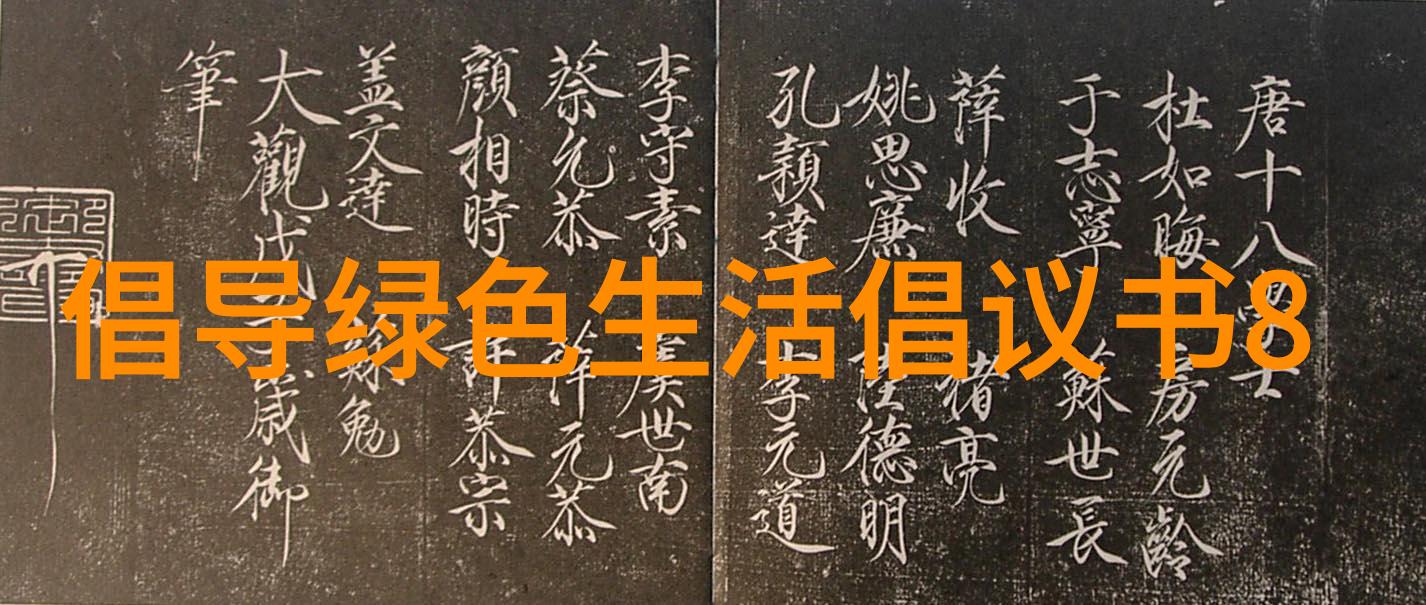 倡导绿色生活倡议书8
唐十八學士
杜如晦 房元齡
于志寧 蘇世長
薛收 褚亮
姚思廉 陸德明
孔穎達 李元道
李守素 虞世南
蔡允恭 薛元恭
顏相時 許恭宗
盖文達 蘇勉
大觀戊 歲御
筆